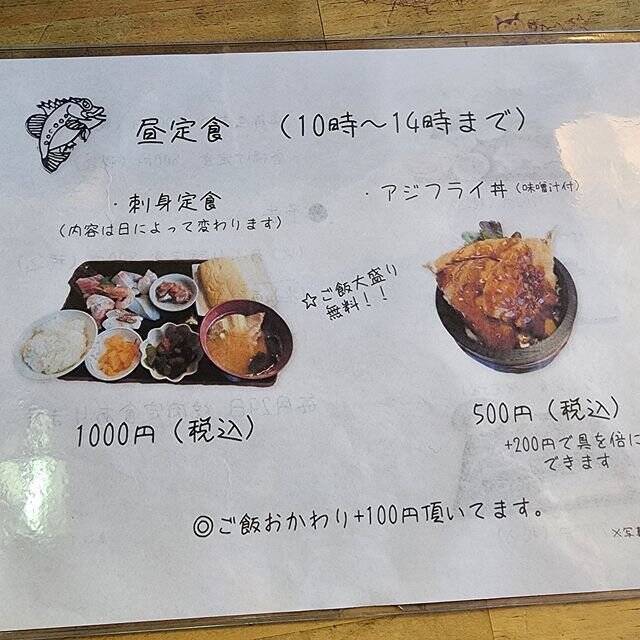 昼定食　(10時～14時まで)
・刺身定食
(内容は日によって変わります)
・アジフライ丼(味噌汁付)
☆ご飯大盛り
無料！！
1000円(税込)
500円(税込)
+200円で具を倍に
できます
◎ご飯おかわり+100円頂いてます。
※写